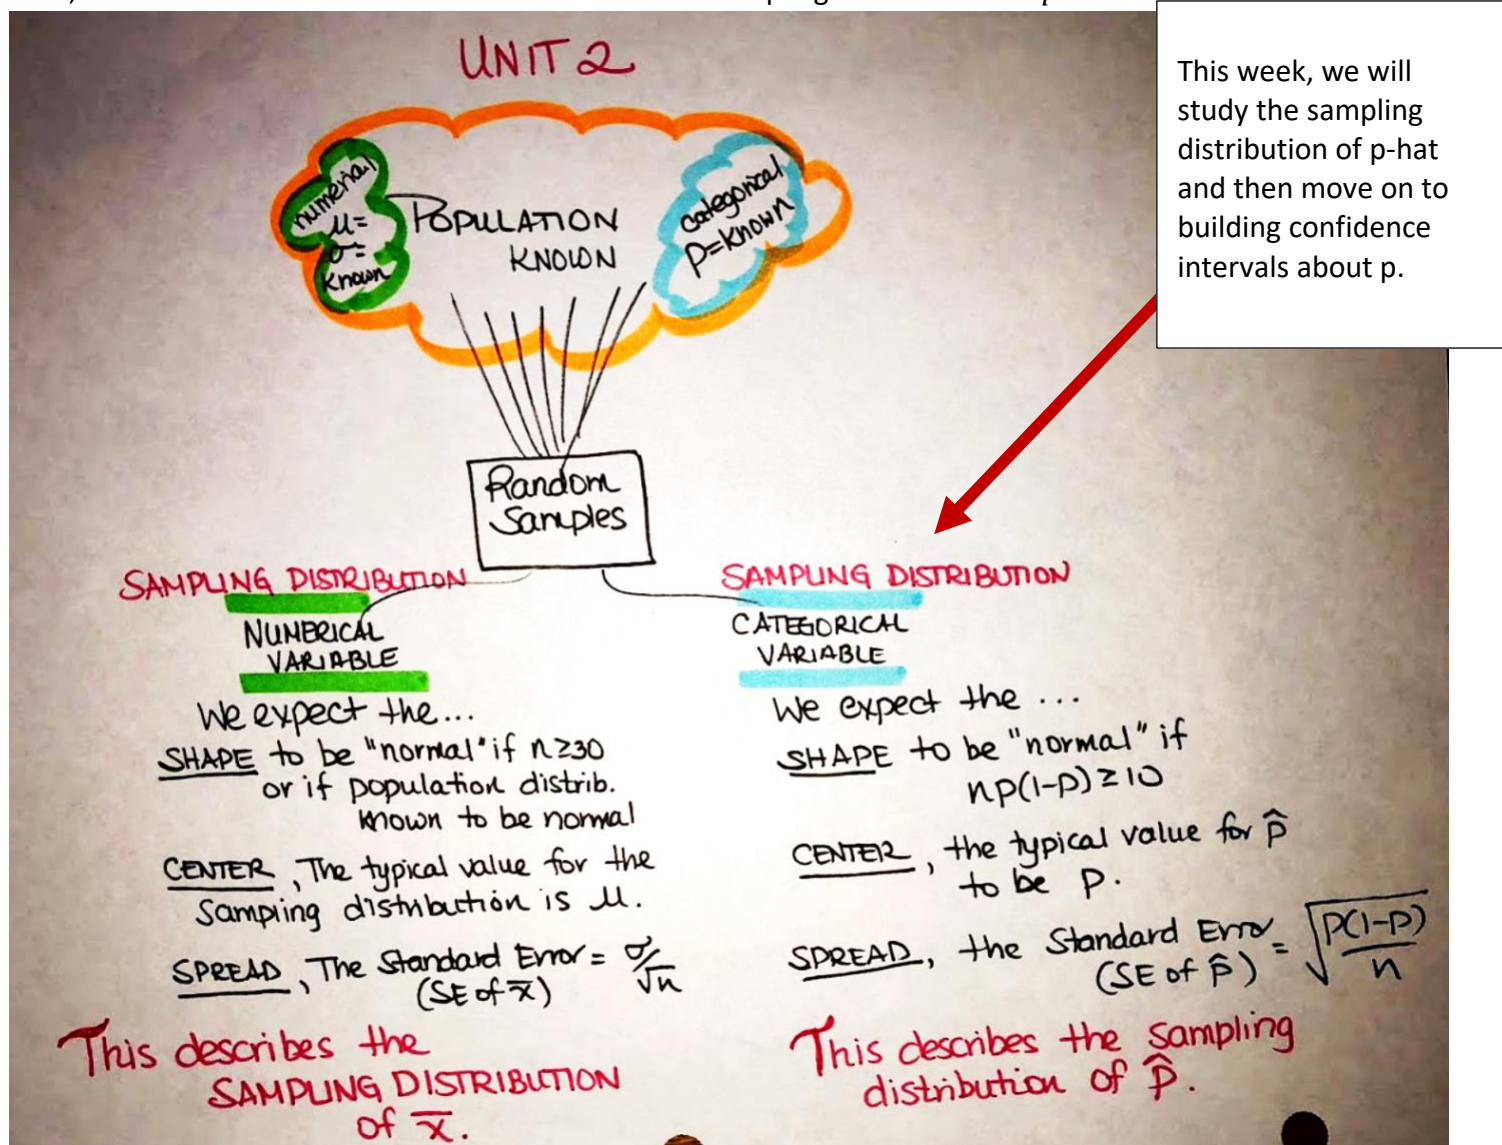 UNIT 2
This week, we will
study the sampling
distribution of p-hat
and then move on to
building confidence
intervals about p.
numerical
μ=
σ=
known
POPULATION
KNOWN
categorical
p=known
Random
Samples
SAMPLING DISTRIBUTION
NUMERICAL
VARIABLE
We expect the...
SHAPE to be "normal" if n≥30
or if population distrib.
known to be normal
CENTER, The typical value for the
Sampling distribution is μ.
SPREAD, The Standard Error = σ/√n
(SE of x̄)
This describes the
SAMPLING DISTRIBUTION
of x̄.
SAMPLING DISTRIBUTION
CATEGORICAL
VARIABLE
We expect the ...
SHAPE to be "normal" if
np(1-p)≥10
CENTER, the typical value for p̂
to be p.
SPREAD, the Standard Error = √(p(1-p)/n)
(SE of p̂)
This describes the sampling
distribution of p̂.